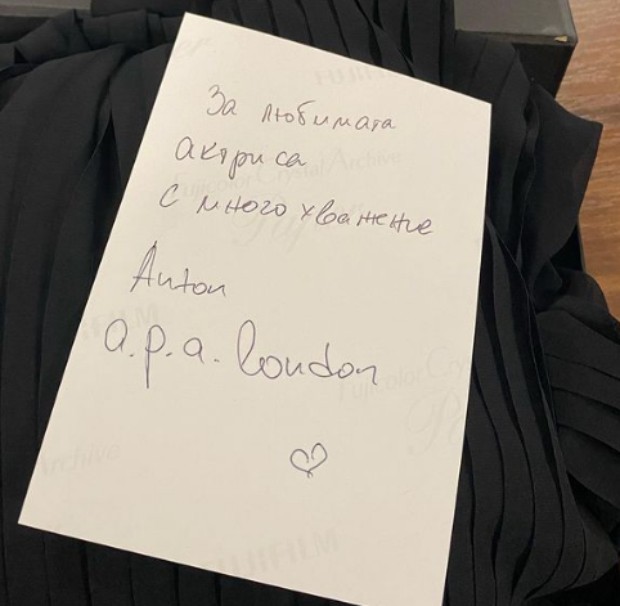 За любимата
актриса
с много уважение
Anton
a.p.a. London
FUJIFILM
Fujicolor Crystal Archive
Paper
FUJIFILM
Fujicolor Crystal
Paper
Archive
FUJIFILM